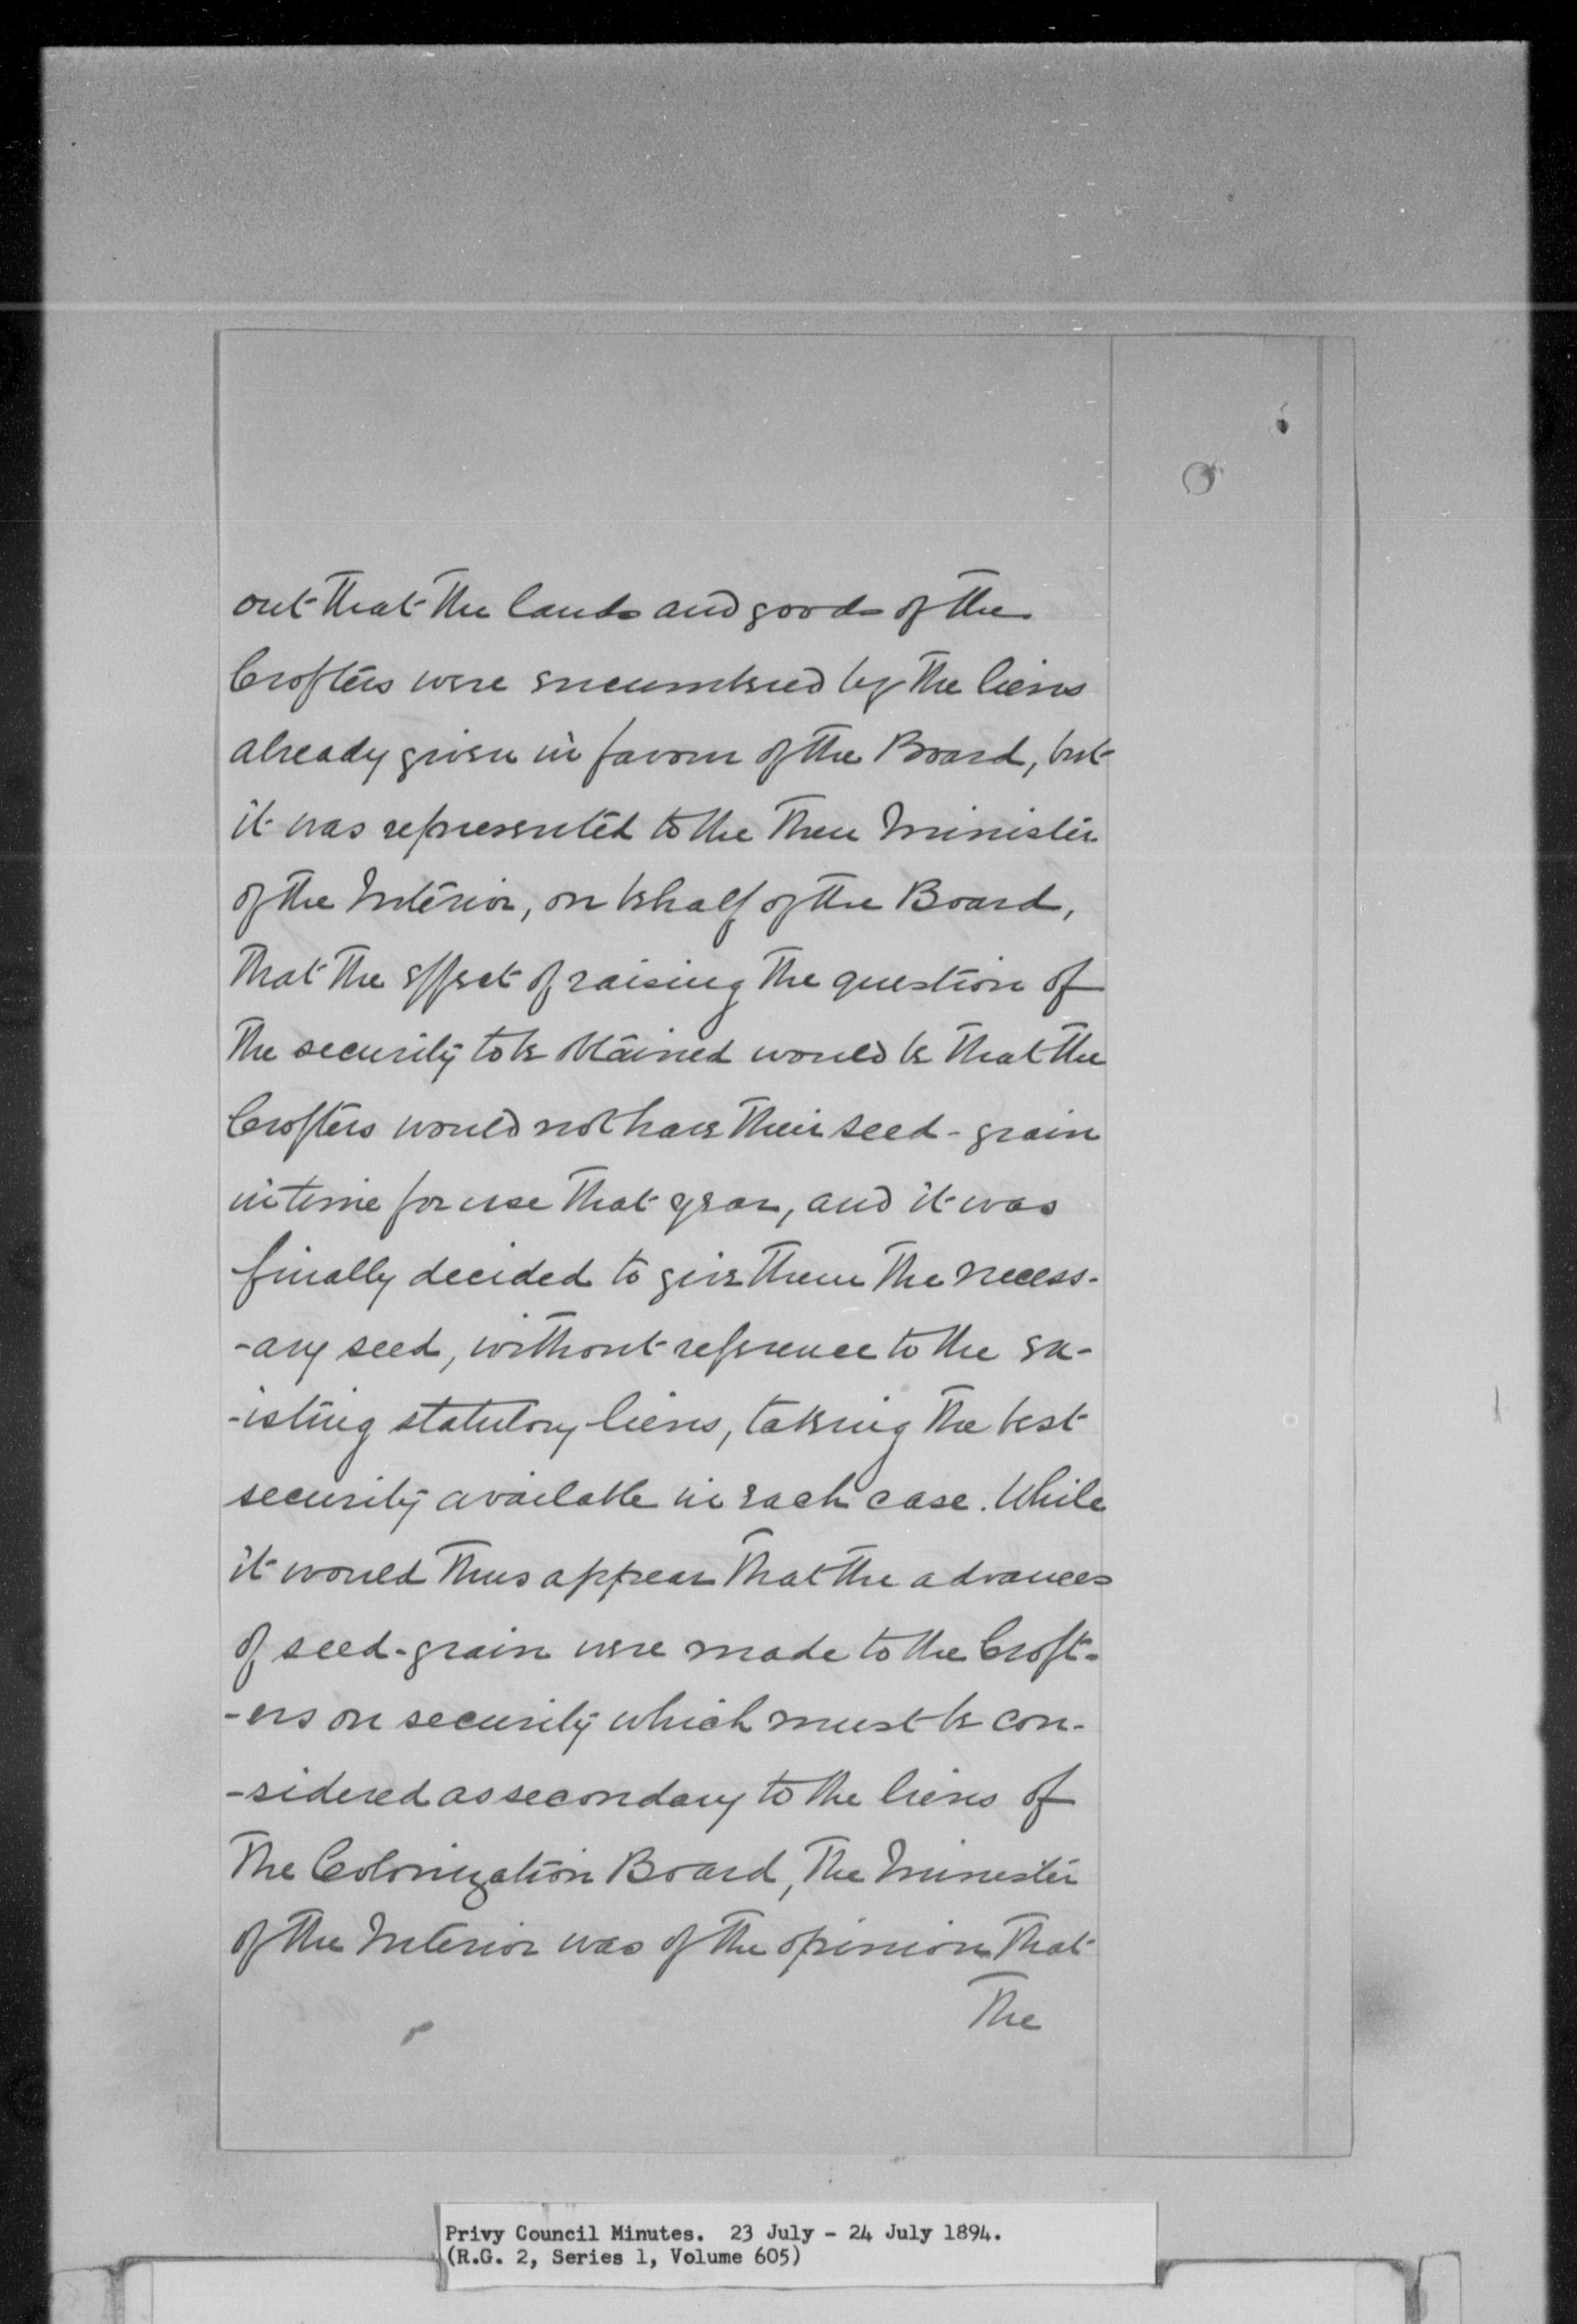 out that the lands and goods of the
Crofters were encumbered by the liens
already given in favour of the Board, but
it was represented to the then Minister
of the Interior, on behalf of the Board,
that the effect of raising the question of
the security to be obtained would be that the
Crofters would not have their seed-grain
in time for use that year, and it was
finally decided to give them the necess-
-ary seed, without reference to the ex-
-isting statutory liens, taking the best
security available in each case. While
it would thus appear that the advances
of seed-grain were made to the Croft-
-ers on security which must be con-
-sidered as secondary to the liens of
the Colonization Board, the Minister
of the Interior was of the opinion that
The
Privy Council Minutes. 23 July - 24 July 1894.
(R.G. 2, Series 1, Volume 605)